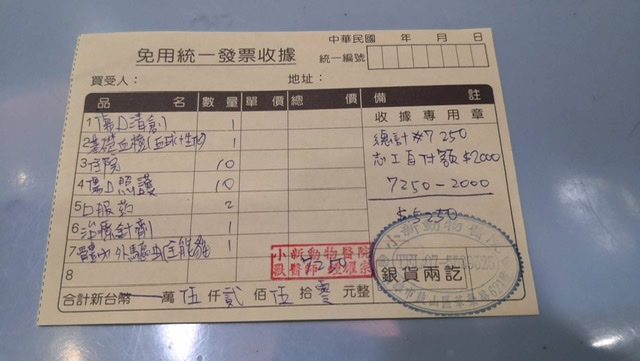 中華民國 年 月 日
免用統一發票收據
統一編號
買受人： 地址：
品 名 數量 單價 總 價 備 註
1 傷口清創 1
2 基礎血檢(血球+生物) 1
3 住院 10
4 傷口照護 10
5 口服藥 2
6 治療針劑 1
7 體內外驅蟲(全能貓 1
8
7250
收據專用章
總計 $7250
志工自付額 $2000
7250-2000
$5250
小新動物醫院
獸醫師
小新動物醫院
銀貨兩訖
合計新台幣 萬 伍 仟 貳 佰 伍 拾 零 元整